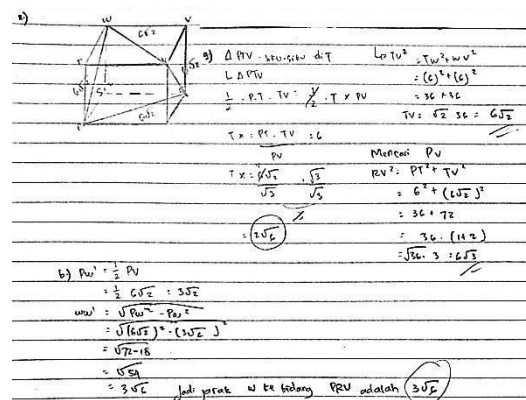 W
6√2
V
T
U
6√2
S
R
P
6√2
g) Δ PTV siku-siku di T
L Δ PTV
½ . P.T . TV = ½ . T x PV
T x = PT . TV = 6
PV
√3
√3 √3
= 2√6
L> TV² = TW² + WV²
= (6)² + (6)²
= 36 + 36
TV = √2 36 = 6√2
Mencari PV
RV² = PT² + TV²
= 6² + (6√2)²
= 36 + 72
= 36 . (1+2)
= √36 . 3 = 6√3
b) PW' = ½ PV
= ½ 6√2 = 3√2
WW' = √PW² - PW²
= √(6√2)² - (3√2)²
= √72-18
= √54
= 3√6 Jadi jarak W ke bidang PRV adalah 3√6